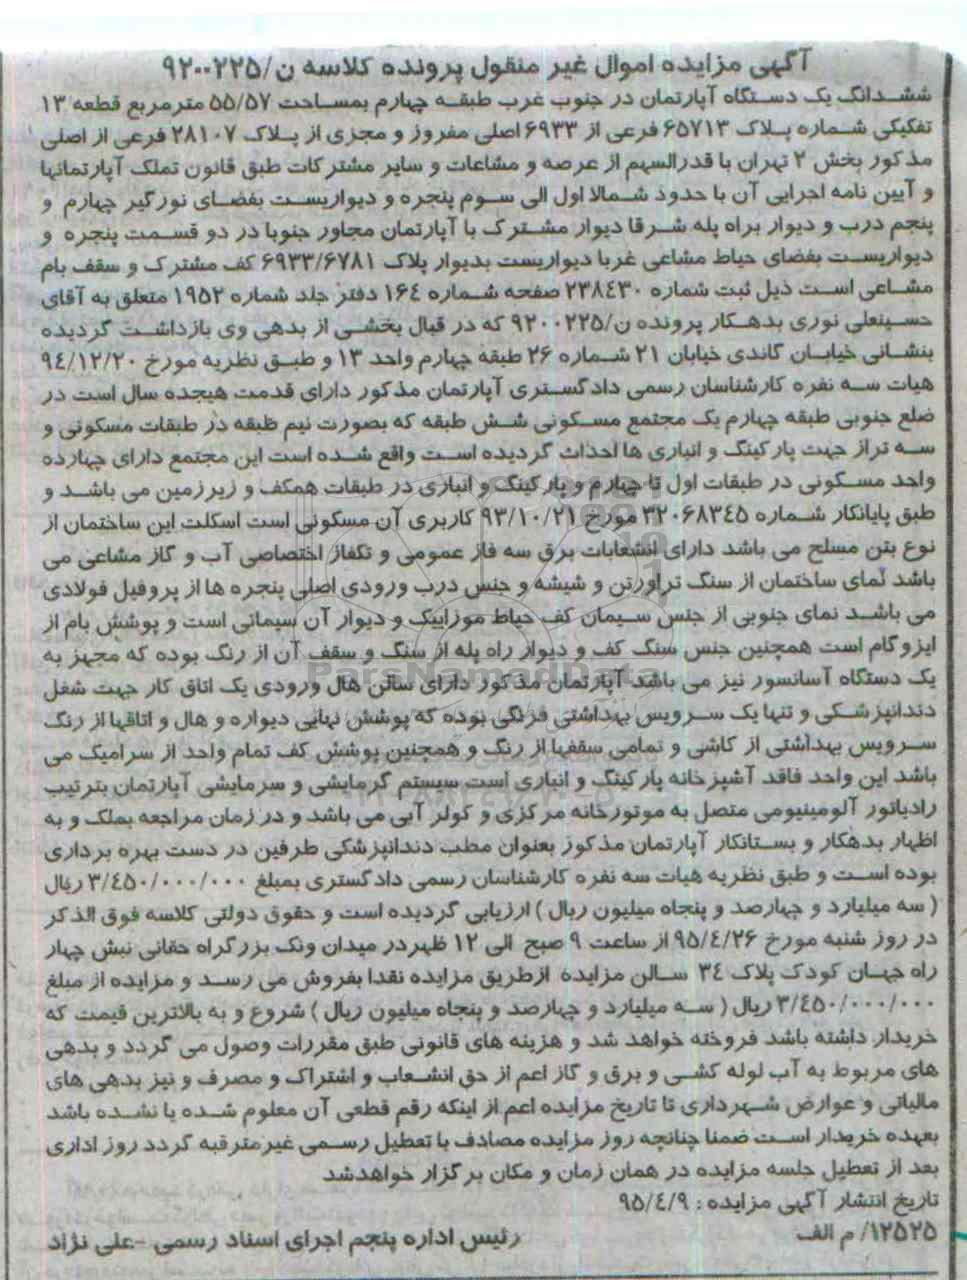 آگهی مزایده اموال غیر منقول پرونده کلاسه ن/۹۲۰۰۲۲۵
ششدانگ یک دستگاه آپارتمان در جنوب غرب طبقه چهارم بمساحت ۵۵/۵۷ مترمربع قطعه ۱۳
تفکیکی شماره پلاک ۶۵۷۱۳ فرعی از ۶۹۳۳ اصلی مفروز و مجزی از پلاک ۲۸۱۰۷ فرعی از اصلی
مذکور بخش ۲ تهران با قدرالسهم از عرصه و مشاعات و سایر مشترکات طبق قانون تملک آپارتمانها
و آیین نامه اجرایی آن با حدود شمالا اول الی سوم پنجره و دیواریست بفضای نورگیر چهارم و
پنجم درب و دیوار براه پله شرقا دیوار مشترک با آپارتمان مجاور جنوبا در دو قسمت پنجره و
دیواریست بفضای حیاط مشاعی غربا دیواریست بدیوار پلاک ۶۹۳۳/۶۷۸۱ کف مشترک و سقف بام
مشاعی است ذیل ثبت شماره ۲۳۸٤۳۰ صفحه شماره ۱۶٤ دفتر جلد شماره ۱۹۵۲ متعلق به آقای
حسینعلی نوری بدهکار پرونده ن/۹۲۰۰۲۲۵ که در قبال بخشی از بدهی وی بازداشت گردیده
بنشانی خیابان گاندی خیابان ۲۱ شماره ۲۶ طبقه چهارم واحد ۱۳ و طبق نظریه مورخ ۹٤/۱۲/۲۰
هیات سه نفره کارشناسان رسمی دادگستری آپارتمان مذکور دارای قدمت هیجده سال است در
ضلع جنوبی طبقه چهارم یک مجتمع مسکونی شش طبقه که بصورت نیم طبقه در طبقات مسکونی و
سه تراز جهت پارکینگ و انباری ها احداث گردیده است واقع شده است این مجتمع دارای چهارده
واحد مسکونی در طبقات اول تا چهارم و پارکینگ و انباری در طبقات همکف و زیرزمین می باشد و
طبق پایانکار شماره ۳۲۰۶۸۳٤۵ مورخ ۹۳/۱۰/۲۱ کاربری آن مسکونی است اسکلت این ساختمان از
نوع بتن مسلح می باشد دارای انشعابات برق سه فاز عمومی و تکفاز اختصاصی آب و گاز مشاعی می
باشد نمای ساختمان از سنگ تراورتن و شیشه و جنس درب ورودی اصلی پنجره ها از پروفیل فولادی
می باشد نمای جنوبی از جنس سیمان کف حیاط موزاییک و دیوار آن سیمانی است و پوشش بام از
ایزوگام است همچنین جنس سنگ کف و دیوار راه پله از سنگ و سقف آن از رنگ بوده که مجهز به
یک دستگاه آسانسور نیز می باشد آپارتمان مذکور دارای سالن هال ورودی یک اتاق کار جهت شغل
دندانپزشکی و تنها یک سرویس بهداشتی فرنگی بوده که پوشش نهایی دیواره و هال و اتاقها از رنگ
سرویس بهداشتی از کاشی و تمامی سقفها از رنگ و همچنین پوشش کف تمام واحد از سرامیک می
باشد این واحد فاقد آشپزخانه پارکینگ و انباری است سیستم گرمایشی و سرمایشی آپارتمان بترتیب
رادیاتور آلومینیومی متصل به موتورخانه مرکزی و کولر آبی می باشد و در زمان مراجعه بملک و به
اظهار بدهکار و بستانکار آپارتمان مذکور بعنوان مطب دندانپزشکی طرفین در دست بهره برداری
بوده است و طبق نظریه هیات سه نفره کارشناسان رسمی دادگستری بمبلغ ۳/٤۵۰/۰۰۰/۰۰۰ ریال
( سه میلیارد و چهارصد و پنجاه میلیون ریال ) ارزیابی گردیده است و حقوق دولتی کلاسه فوق الذکر
در روز شنبه مورخ ۹۵/٤/۲۶ از ساعت ۹ صبح الی ۱۲ ظهر در میدان ونک بزرگراه حقانی نبش چهار
راه جهان کودک پلاک ۳٤ سالن مزایده ازطریق مزایده نقدا بفروش می رسد و مزایده از مبلغ
۳/٤۵۰/۰۰۰/۰۰۰ ریال ( سه میلیارد و چهارصد و پنجاه میلیون ریال ) شروع و به بالاترین قیمت که
خریدار داشته باشد فروخته خواهد شد و هزینه های قانونی طبق مقررات وصول می گردد و بدهی
های مربوط به آب لوله کشی و برق و گاز اعم از حق انشعاب و اشتراک و مصرف و نیز بدهی های
مالیاتی و عوارض شهرداری تا تاریخ مزایده اعم از اینکه رقم قطعی آن معلوم شده یا نشده باشد
بعهده خریدار است ضمنا چنانچه روز مزایده مصادف با تعطیل رسمی غیرمترقبه گردد روز اداری
بعد از تعطیل جلسه مزایده در همان زمان و مکان برگزار خواهدشد
تاریخ انتشار آگهی مزایده : ۹۵/٤/۹
۱۲۵۲۵/ م الف
رئیس اداره پنجم اجرای اسناد رسمی -علی نژاد
ParsNamadData